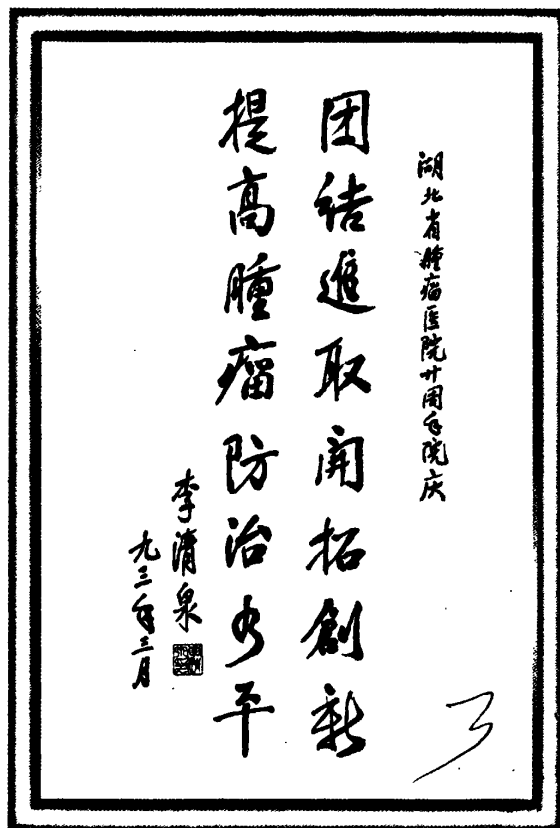 湖北省腫瘤医院廿周年院庆
团结進取開拓創新
提高腫瘤防治水平
李清泉
九三年三月
3